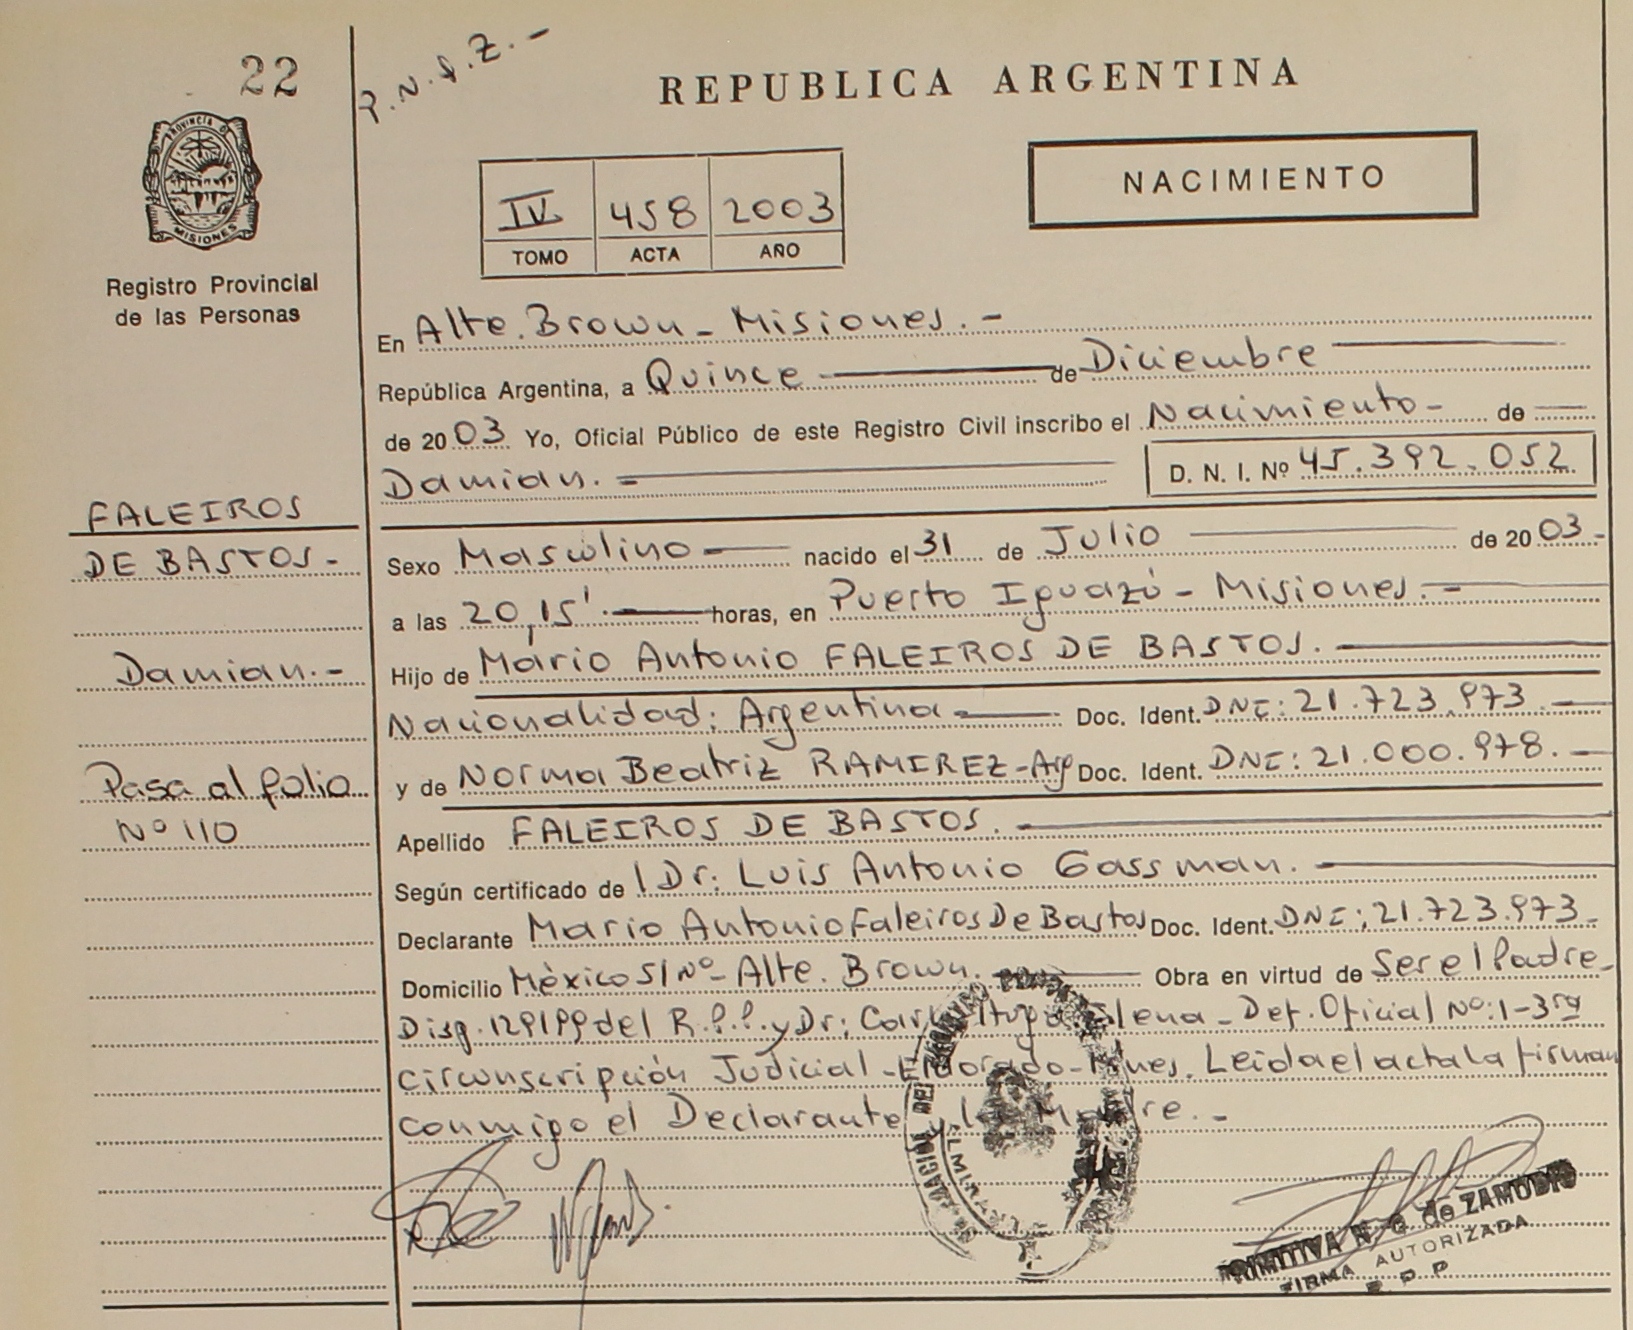 22
R.N.I.Z.-
REPUBLICA ARGENTINA
PROVINCIA DE
MISIONES
NACIMIENTO
IV 458 2003
TOMO ACTA AÑO
Registro Provincial
de las Personas
En Alte. Brown - Misiones. -
República Argentina, a Quince de Diciembre
de 2003 Yo, Oficial Público de este Registro Civil inscribo el Nacimiento - de
Damian. - D. N. I. Nº 45.392.052
FALEIROS
DE BASTOS -
Damian. -
Pasa al folio
Nº 110
Sexo Masculino nacido el 31 de Julio de 2003 -
a las 20,15' horas, en Puerto Iguazú - Misiones. -
Hijo de Mario Antonio FALEIROS DE BASTOS.
Nacionalidad: Argentina Doc. Ident. DNI: 21.723.973
y de Norma Beatriz RAMIREZ - Arg Doc. Ident. DNI: 21.000.978.
Apellido FALEIROS DE BASTOS.
Según certificado del Dr: Luis Antonio Gassman.
Declarante Mario Antonio Faleiros De Bastos Doc. Ident. DNI: 21.723.973
Domicilio Mèxico S/Nº - Alte. Brown. Obra en virtud de Ser el Padre -
Disp. 129/99 del R.P.P. y Dr: Hugo - Def. Oficial Nº: 1 - 3ra
circunscripción Judicial - Eldorado - Mnes. Leida el acta la firman
conmigo el Declarante y la Madre. -
N. G. de ZAMUDIO
FIRMA AUTORIZADA
R. P. P.